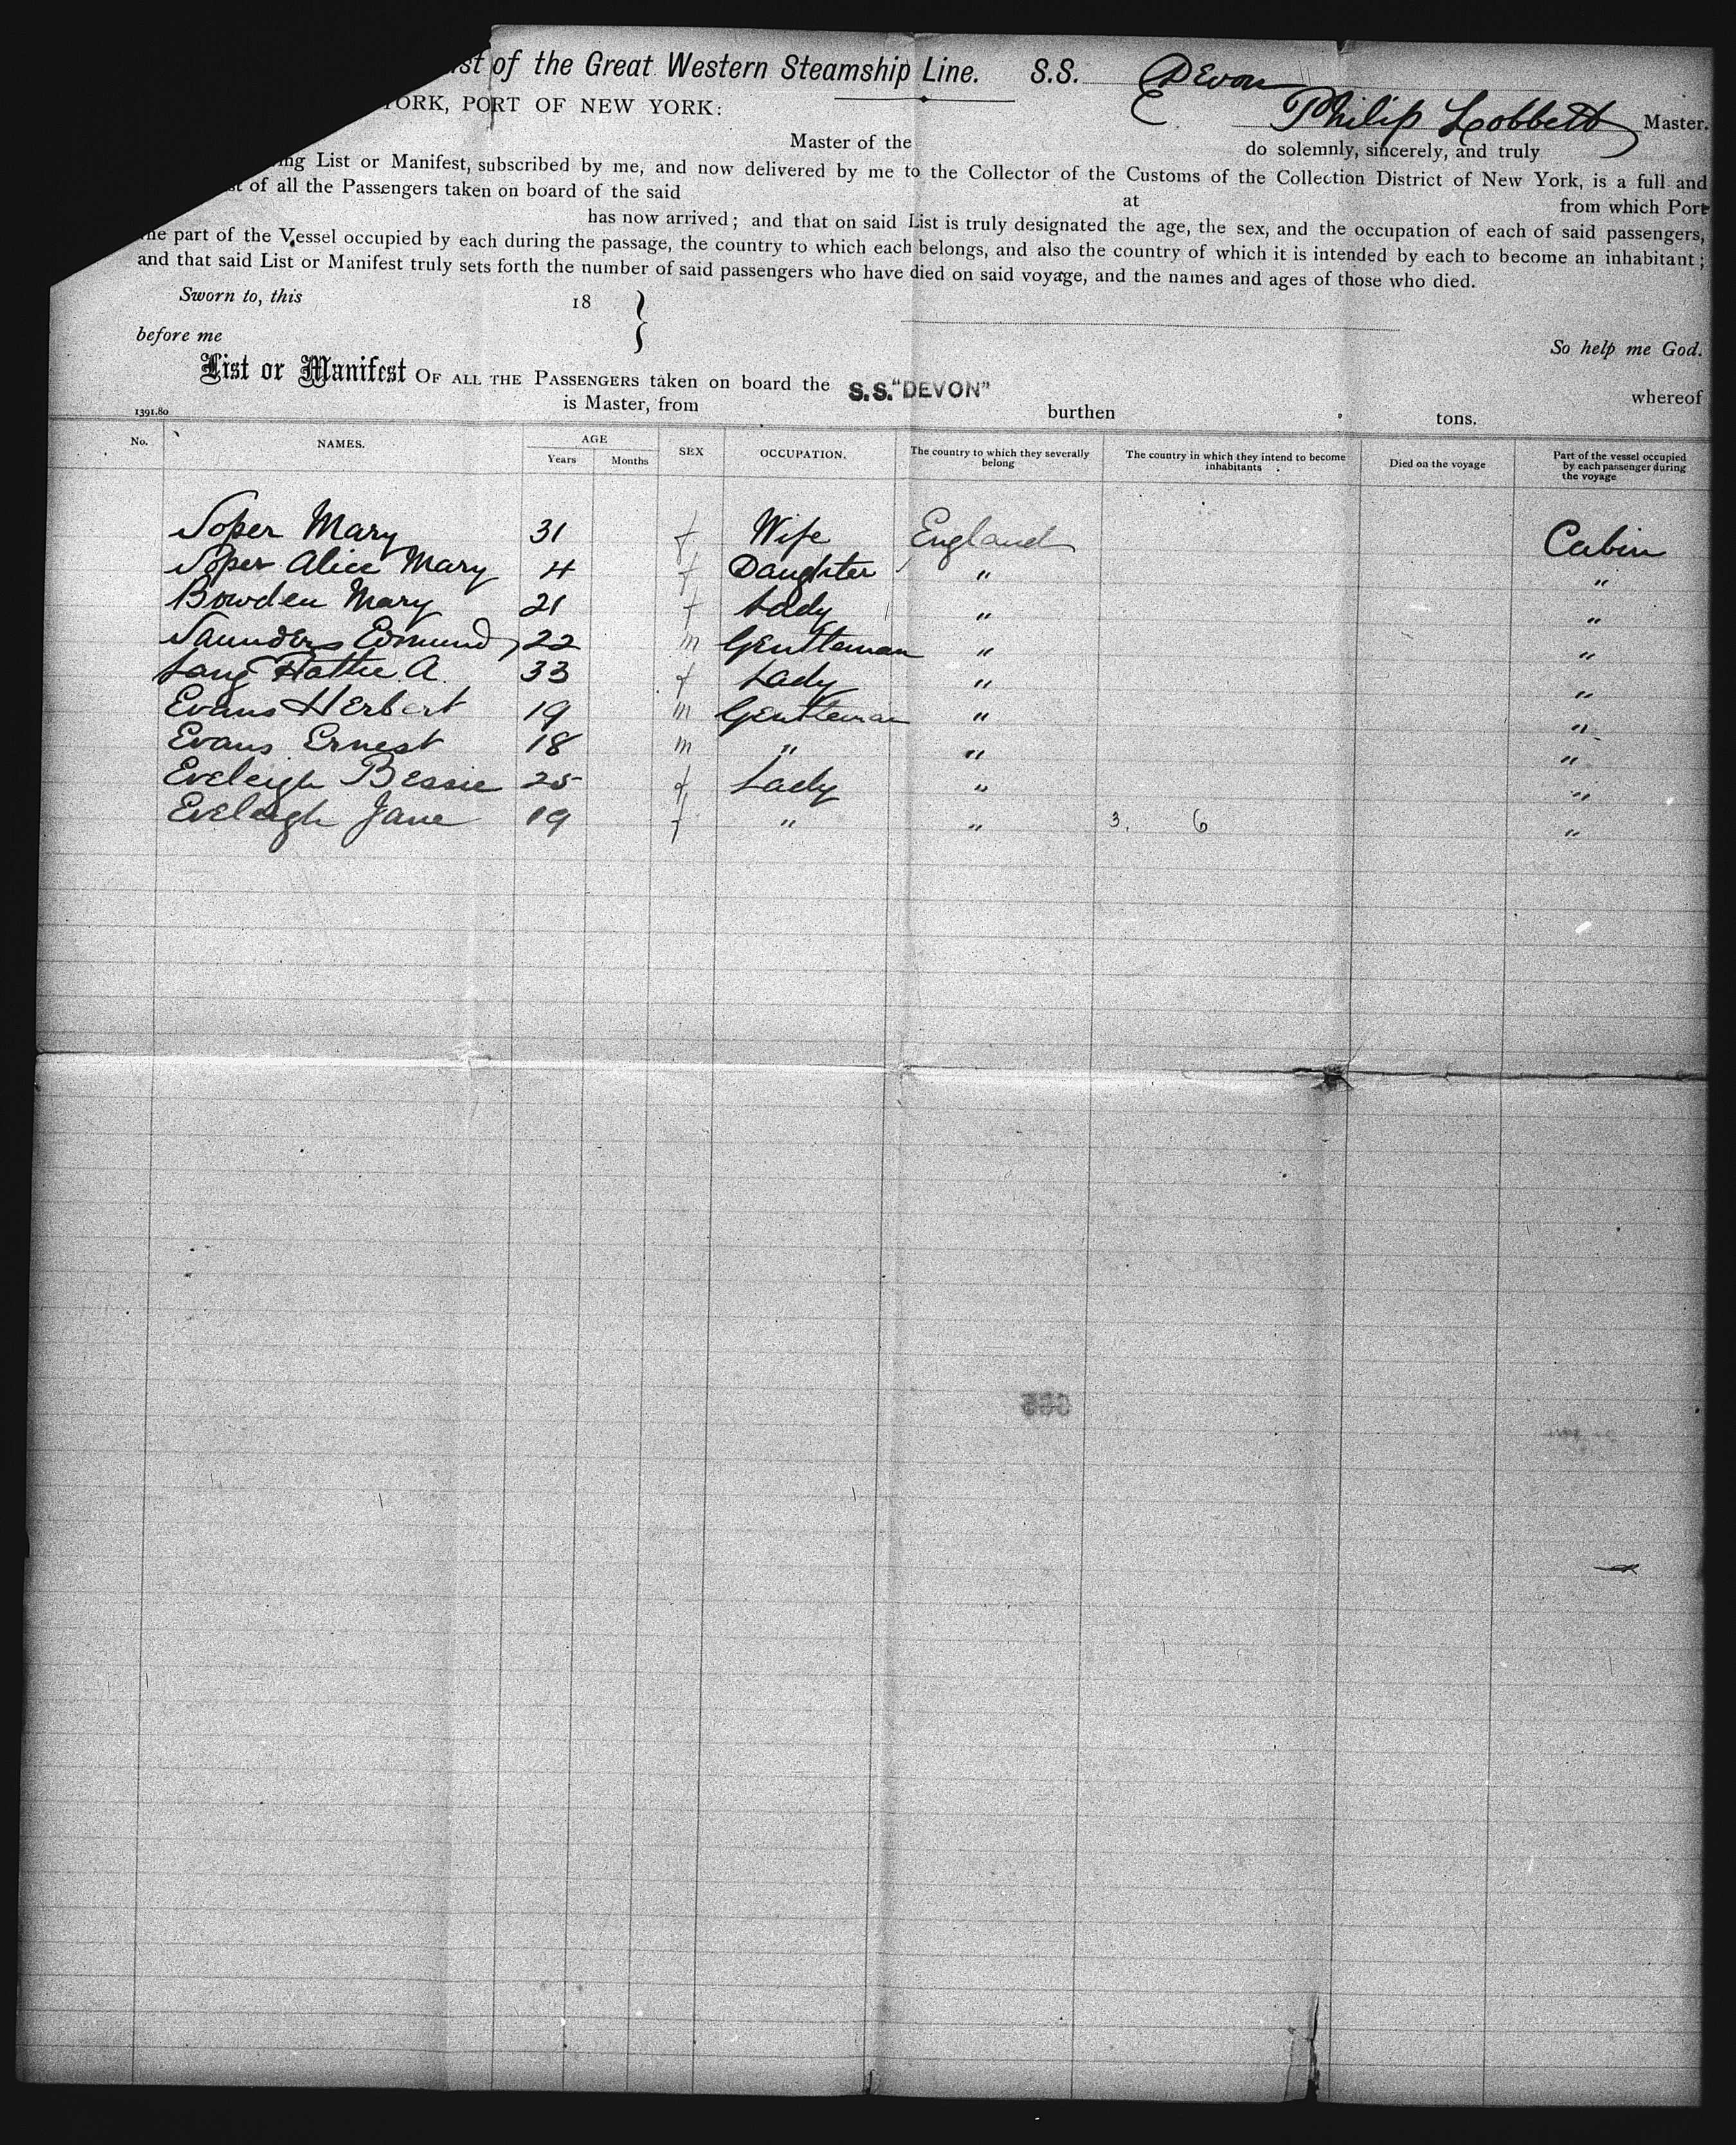 st of the Great Western Steamship Line. S.S. Devon
YORK, PORT OF NEW YORK: Philip Lobbett Master.
Master of the do solemnly, sincerely, and truly
ing List or Manifest, subscribed by me, and now delivered by me to the Collector of the Customs of the Collection District of New York, is a full and
st of all the Passengers taken on board of the said at from which Port
has now arrived; and that on said List is truly designated the age, the sex, and the occupation of each of said passengers,
the part of the Vessel occupied by each during the passage, the country to which each belongs, and also the country of which it is intended by each to become an inhabitant;
and that said List or Manifest truly sets forth the number of said passengers who have died on said voyage, and the names and ages of those who died.
Sworn to, this 18 }
before me So help me God.
List or Manifest OF ALL THE PASSENGERS taken on board the S.S. "DEVON" whereof
1391.80 is Master, from burthen tons.
No. NAMES. AGE Years Months SEX OCCUPATION. The country to which they severally belong The country in which they intend to become inhabitants Died on the voyage Part of the vessel occupied by each passenger during the voyage
Soper Mary 31 f Wife England Cabin
Soper Alice Mary 4 f Daughter " "
Bowden Mary 21 f Lady " "
Saunders Edmund 22 m Gentleman " "
Lang Hattie A. 33 f Lady " "
Evans Herbert 19 m Gentleman " "
Evans Ernest 18 m " " "
Eveleigh Bessie 25 f Lady " "
Eveleigh Jane 19 f " " 3. 6 "